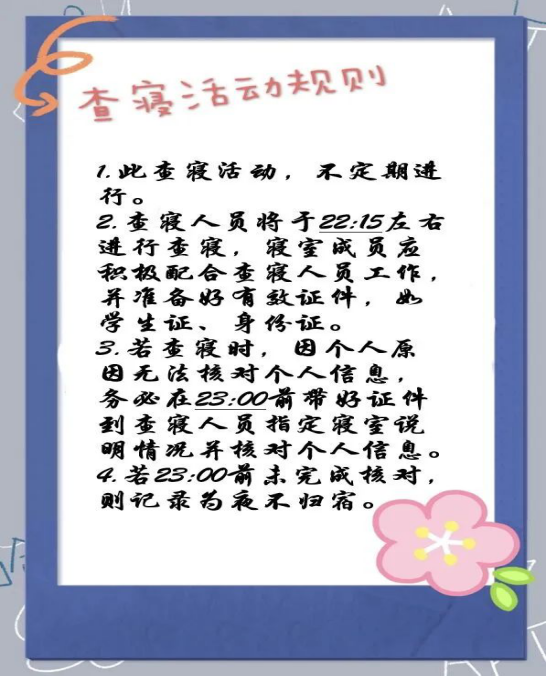 查寝活动规则
1.此查寝活动，不定期进
行。
2.查寝人员将于22:15左右
进行查寝，寝室成员应
积极配合查寝人员工作，
并准备好有效证件，如
学生证、身份证。
3.若查寝时，因个人原
因无法核对个人信息，
务必在23:00前带好证件
到查寝人员指定寝室说
明情况并核对个人信息。
4.若23:00前未完成核对，
则记录为夜不归宿。